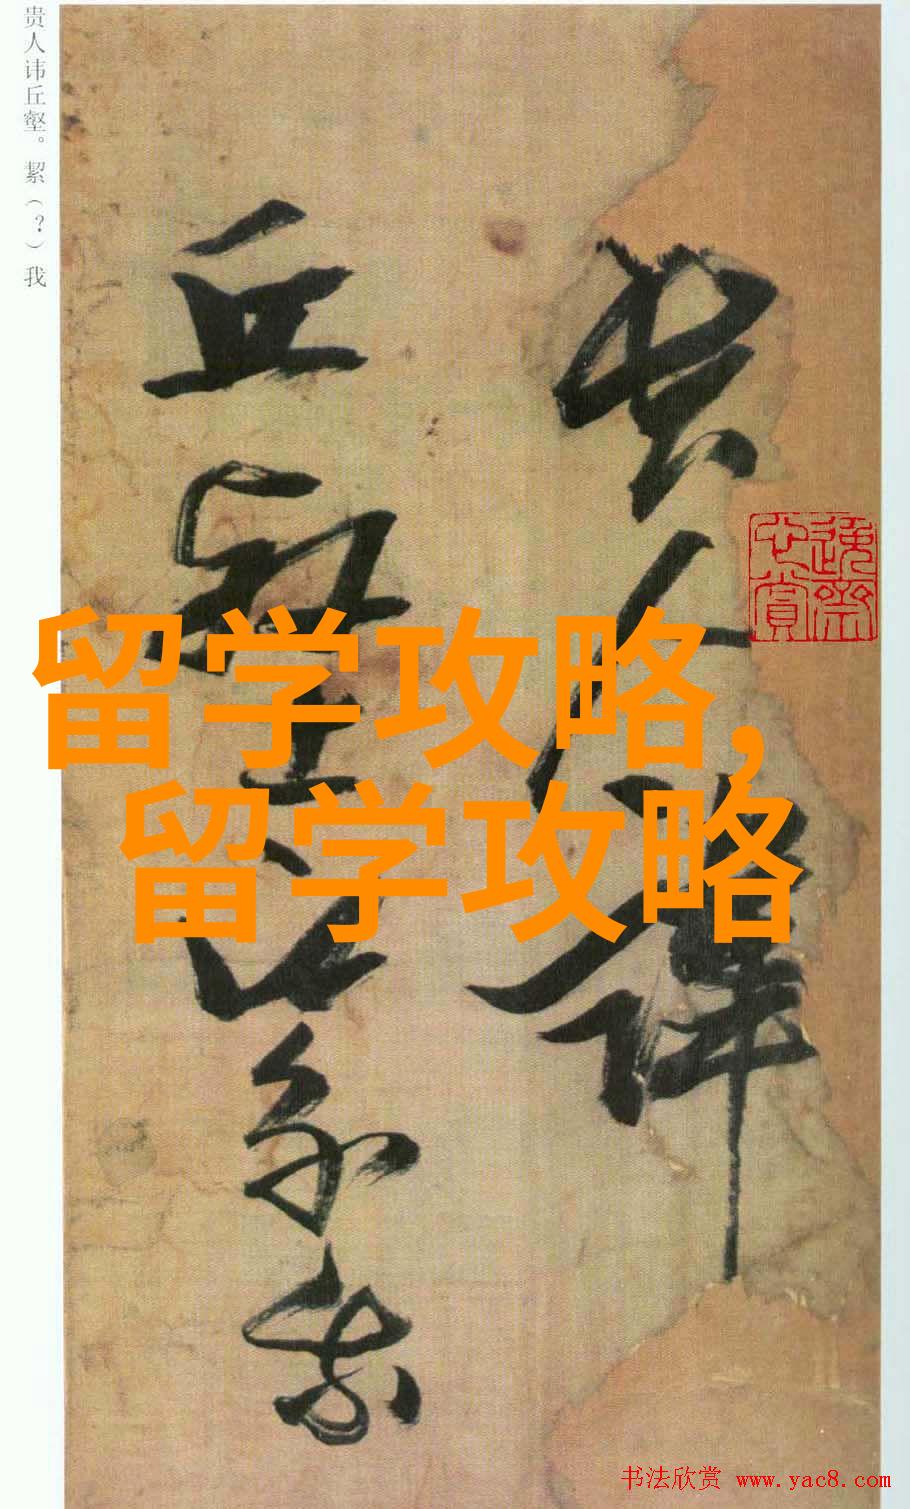 贵人讳丘壑。絜（？）我
贵人讳
丘壑
我
留学攻略,
留学攻略
书法欣赏 www.yac8.com